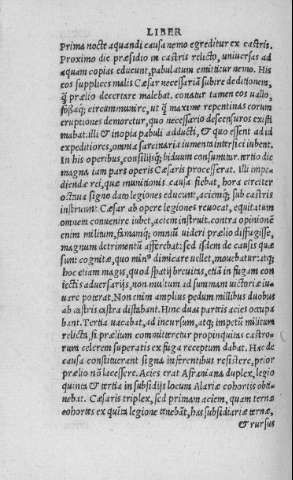 LIBER
Prima nocte aquandi causa nemo egreditur ex castris.
Proximo die præsidio in castris relicto, uniuersas ad
aquam copias educunt, pabulatum emittitur nemo. His
eos supplices malis Cæsar necessariã subire deditionem,
q̃ prælio decertare malebat. conatur tamen eos uallo,
fossaq; circummunire, ut q̃ maxime repentinas eorum
eruptiones demoretur, quo necessario descensuros existi
mabat. illi & inopia pabuli adducti, & quo essent ad id
expeditiores, omnia sarcinaria iumenta interfici iubent.
In his operibus, consilijsq; biduum consumitur. tertio die
magna iam pars operis Cæsaris processerat. illi impe
diendæ rei, quæ munitionis causa fiebat, hora circiter
octaua signo dato legiones educunt, aciemq; sub castris
instruunt. Cæsar ab opere legiones reuocat, equitatum
omnem conuenire iubet, aciem instruit. contra opinionẽ
enim militum, famamq; omniũ uideri prælio diffugisse,
magnum detrimentũ afferebat: sed ijsdem de causis quæ
sunt cognitæ, quo minꝰ dimicare uellet, mouebatur. atq;
hoc etiam magis, quod spatij breuitas, etiã in fugam con
iectis aduersarijs, non multum ad summam uictoriæ iu-
uare poterat. Non enim amplius pedum millibus duobus
ab castris castra distabant. Hinc duas partes acies occupa
bant. Tertia uacabat, ad incursum, atq; impetũ militum
relicta, si prælium committeretur propinquitas castro-
rum celerem superatis ex fuga receptum dabat. Hac de
causa constituerant signa inferentibus resistere, prior
prælio nõ lacessere. Acies erat Afraniana duplex, legio
quinta & tertia in subsidijs locum Alariæ cohortis obti
nebat. Cæsaris triplex, sed primam aciem, quam ternæ
cohortes ex quinta legione tenebãt, has subsidiariæ ternæ,
& rursus